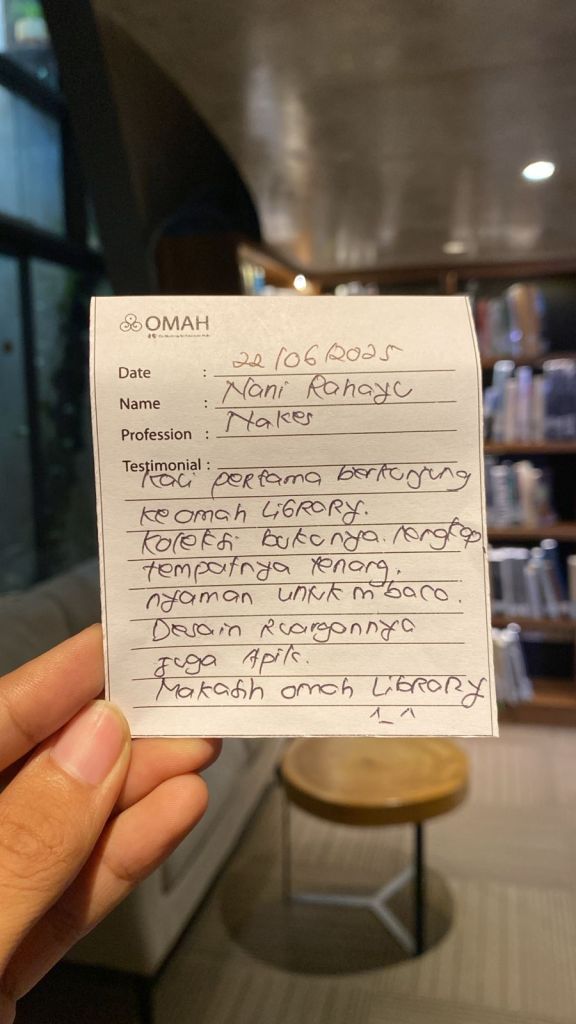 OMAH
Date : 22/06/2025
Name : Nani Rahayu
Profession : Nakes
Testimonial :
Kali pertama berkunjung
ke omah LiBRARY.
Koleksi bukunya lengkap
tempatnya tenang,
nyaman untuk mbaca.
Desain Ruangannya
juga Apik.
Makasih omah LiBRARY
^_^